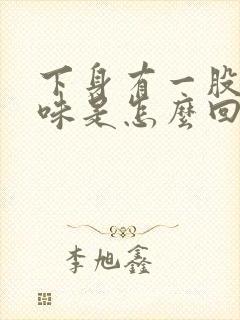 下身有一股
味是怎麼回
李旭鑫